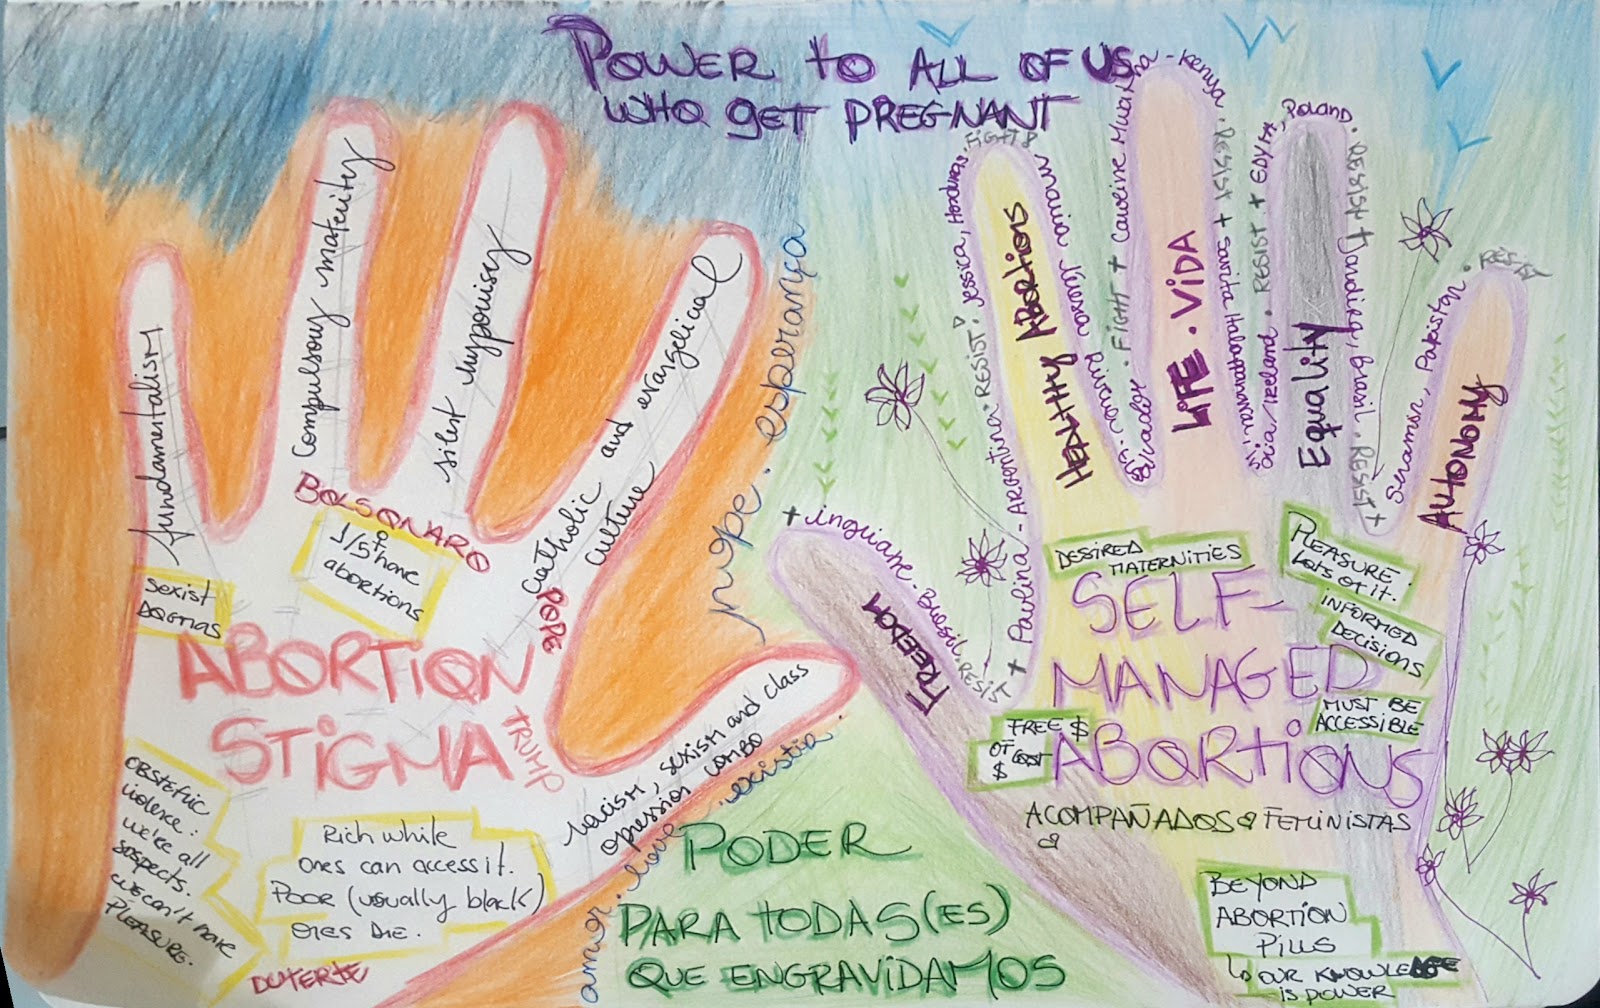 POWER to ALL OF US
WHO GET PREGNANT
fundamentalism
Compulsory maternity
silent hypocrisy
Catholic and evangelical
culture
racism, sexism and class
opression combo
BOLSONARO
POPE
TRUMP
DUTERTE
sexist
DOGMAS
1/5
have
abortions
ABORTION
STIGMA
OBSTETRIC
violence:
we're all
suspects.
we can't have
PLEASURE.
Rich while
ones can access it.
POOR (usually black)
ones DIE.
hope. esperança
amor. love. existir.
PODER
PARA TODAS(ES)
QUE ENGRAVIDAMOS
FREEDOM
HEALTHY ABORTIONS
LIFE. VIDA
Equality
AUTONOMY
+ ingriane - Brasil. RESIST
+ Paulina - ARGENTINA. RESIST. Jessica, Honduras. FIGHT
Ecuador. FIGHT + Caroline Mwa - Kenya. RESIST + savita
Ireland. RESIST + EDYTA, POLAND. RESIST + Jandira, Brasil. RESIST
+ Pakistan. RESIST
DESIRED
MATERNITIES
PLEASURE.
Lots of it.
INFORMED
DECISIONS
MUST BE
ACCESSIBLE
SELF-
MANAGED
ABORTIONS
FREE $
OF COST
$
ACOMPAÑADOS FEMINISTAS
BEYOND
ABORTION
PILLS
OUR KNOWLEDGE
IS POWER